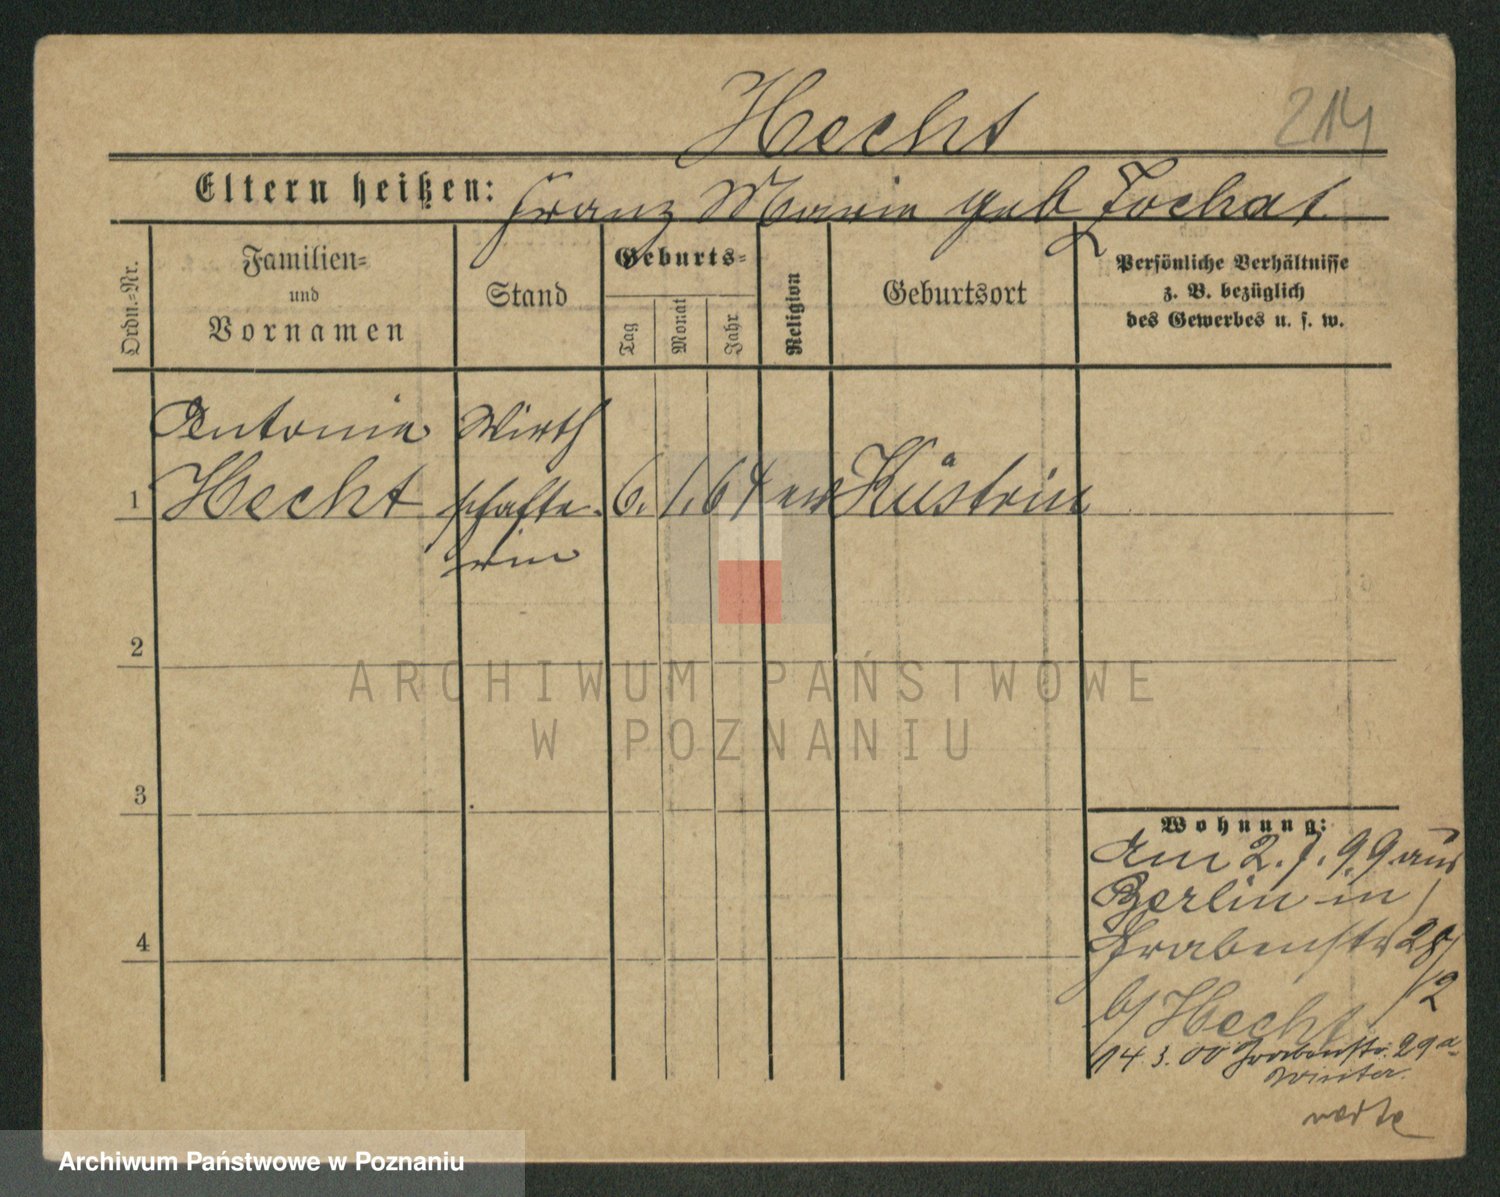 Hecht
214
Eltern heißen: Franz Marie geb Zochat
Ordn.-Nr.
Familien-
und
Vornamen
Stand
Geburts-
Tag
Monat
Jahr
Religion
Geburtsort
Persönliche Verhältnisse
z. B. bezüglich
des Gewerbes u. s. w.
Antonie Wirth
1 Hecht schafte- 6. 1. 64 ev Küstrin
rin
2
3
4
Wohnung:
Am 2. 7. 99 aus
Berlin in
Grabenstr 28/
2
b/ Hecht
14. 3. 00 Grabenstr. 29a
Winter.
ARCHIWUM PAŃSTWOWE
W POZNANIU
Archiwum Państwowe w Poznaniu